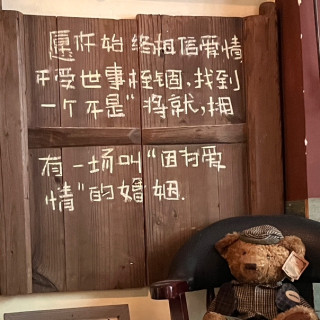 愿你始终相信爱情
不受世事桎锢,找到
一个不是"将就,拥
有一场叫"因为爱
情"的婚姻.